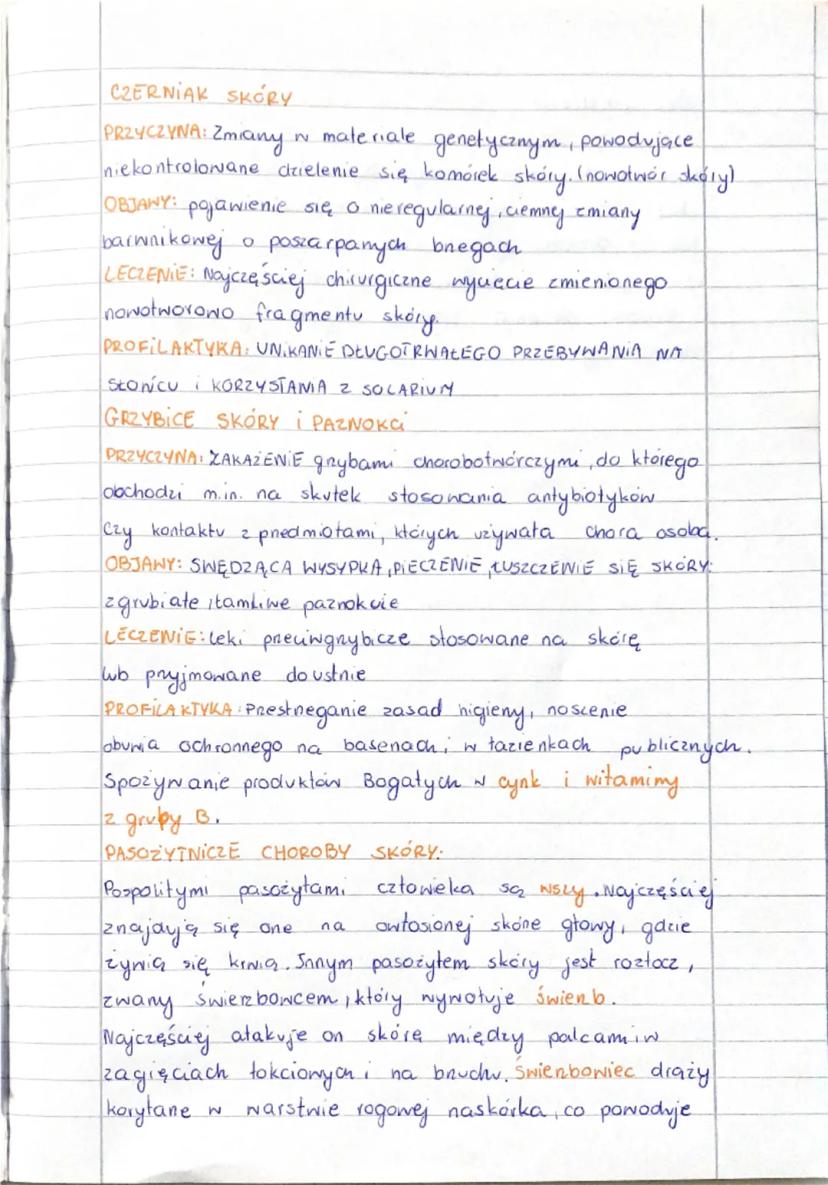 CZERNIAK SKÓRY
PRZYCZYNA: Zmiany w materiale genetycznym, powodujące
niekontrolowane dzielenie się komórek skóry. (nowotwór skóry)
OBJAWY: pojawienie się o nieregularnej, ciemnej zmiany
barwnikowej o poszarpanych brzegach
LECZENIE: Najczęściej chirurgiczne wycięcie zmienionego
nowotworowo fragmentu skóry.
PROFILAKTYKA: UNIKANIE DŁUGOTRWAŁEGO PRZEBYWANIA NA
SŁOŃCU i KORZYSTANIA Z SOLARIUM
GRZYBICE SKÓRY i PAZNOKCi
PRZYCZYNA: ZAKAŻENIE grzybami chorobotwórczymi, do którego
obchodzi m.in. na skutek stosowania antybiotyków
Czy kontaktu z przedmiotami, których używała chora osoba.
OBJAWY: SWĘDZĄCA WYSYPKA, PIECZENIE, ŁUSZCZENIE SIĘ SKÓRY.
zgrubiałe i łamliwe paznokcie
LECZENIE: Leki przeciwgrzybicze stosowane na skórę
lub przyjmowane doustnie
PROFILAKTYKA: Przestrzeganie zasad higieny, noszenie
obuwia ochronnego na basenach i w łazienkach publicznych.
Spożywanie produktów Bogatych w cynk i witaminy
z grupy B.
PASOŻYTNICZE CHOROBY SKÓRY:
Pospolitymi pasożytami człowieka są wszy. Najczęściej
znajdują się one na owłosionej skórze głowy, gdzie
żywią się krwią. Innym pasożytem skóry jest roztocz,
zwany świerzbowcem, który wywołuje świerzb.
Najczęściej atakuje on skórę między palcami w
zagięciach łokciowych i na brzuchu. Świerzbowiec drąży
korytarze w warstwie rogowej naskórka, co powoduje